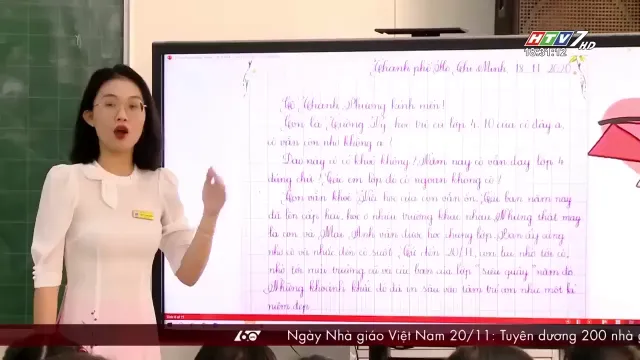 HTV7 HD
18:31:12
Thành phố Hồ Chí Minh, 18.11.2020
Cô Thanh Phương kính mến!
Con là Tường Vy, học trò cũ lớp 4.10 của cô đây ạ,
cô vẫn còn nhớ không ạ?
Dạo này cô có khỏe không? Năm nay cô vẫn dạy lớp 4
đúng chứ? Các em lớp đó có ngoan không cô?
Con vẫn khỏe. Việc học của con vẫn ổn. Các bạn năm nay
đã lên cấp hai, học ở nhiều trường khác nhau. Nhưng thật may
là con và Mai Anh vẫn được học chung lớp. Bạn ấy cũng
nhớ cô và nhắc đến cô suốt. Gần đến 20/11, con lại nhớ tới cô,
nhớ tới mái trường cũ và các bạn của lớp "siêu quậy" năm đó.
Những khoảnh khắc đó đã in sâu vào tâm trí con như một kỉ
niệm đẹp.
60
Ngày Nhà giáo Việt Nam 20/11: Tuyên dương 200 nhà